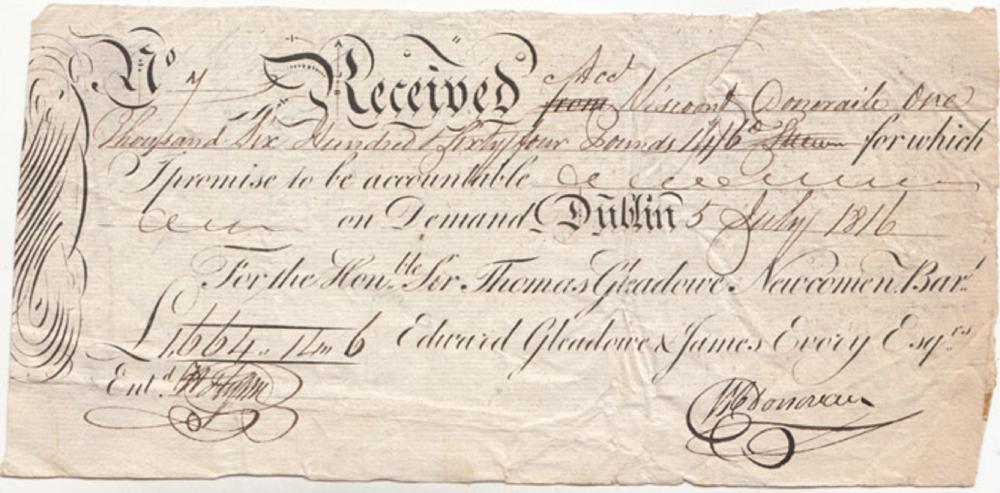 Nº Received acct from Viscont Donoraile One
Thousand Six Hundred & Sixty four Pounds 14/6 for which
I promise to be accountable
on Demand Dublin 5 July 1816
For the Honble Sir Thomas Gleadowe Newcomen Bart
£1,664 14 6 Edward Gleadowe & James Evory Esqrs
Entd